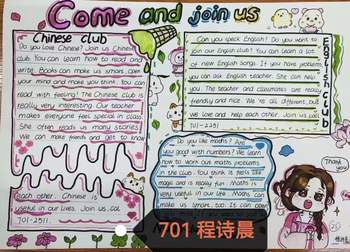 Come and join us
Chinese club
Do you love Chinese? Join us Chinese
club. You can learn how to read and
write. Books can make us smart, open
your mind and make you
read with feeling! The Chinese club is
really very interesting. Our teacher
makes everyone feel special in class.
She often reads us many stories.
We can make friends and get to know
each other. Chinese is
useful in our lives. Join us. call
701-2511.
English club
Can you speak English? Do you want to
join our English club? You can learn a lot
of new English songs. If you have problems
you can ask English teacher. She can help
you. The teacher and classmates are really
friendly and nice. We're all different but
we love and help each other. Join us call
701-2251
Do you like maths? Are
you good with numbers? We learn
how to work out maths problems
in the club. You think is feels like
magic and is really fun. Maths is
useful in our life. Maths can
make us smart, too. It can
701 程诗晨